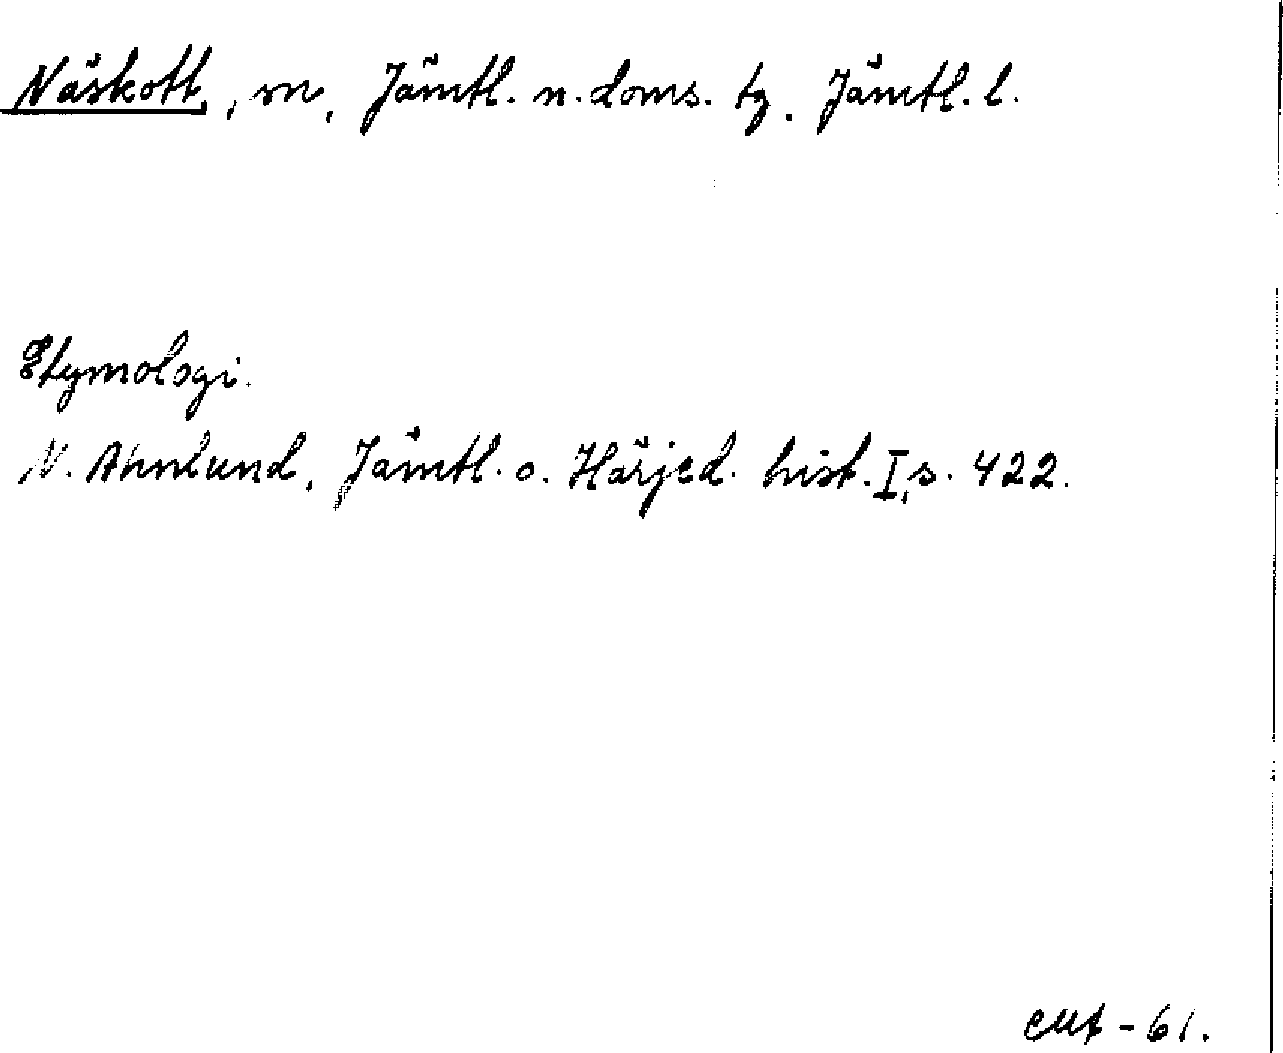 Näskott, sn, Jämtl. n. doms. tg. Jämtl. l.
Etymologi.
N. Ahnlund, Jämtl. o. Härjed. hist. I, s. 422.
-61.